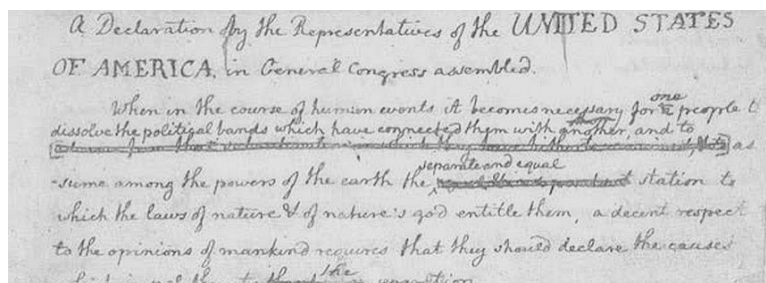 A Declaration by the Representatives of the UNITED STATES
OF AMERICA, in General Congress assembled.
When in the course of human events it becomes necessary for one people to
dissolve the political bands which have connected them with another, and to
as
separate and equal
-sume among the powers of the earth the station to
which the laws of nature & of nature's god entitle them, a decent respect
to the opinions of mankind requires that they should declare the causes
the